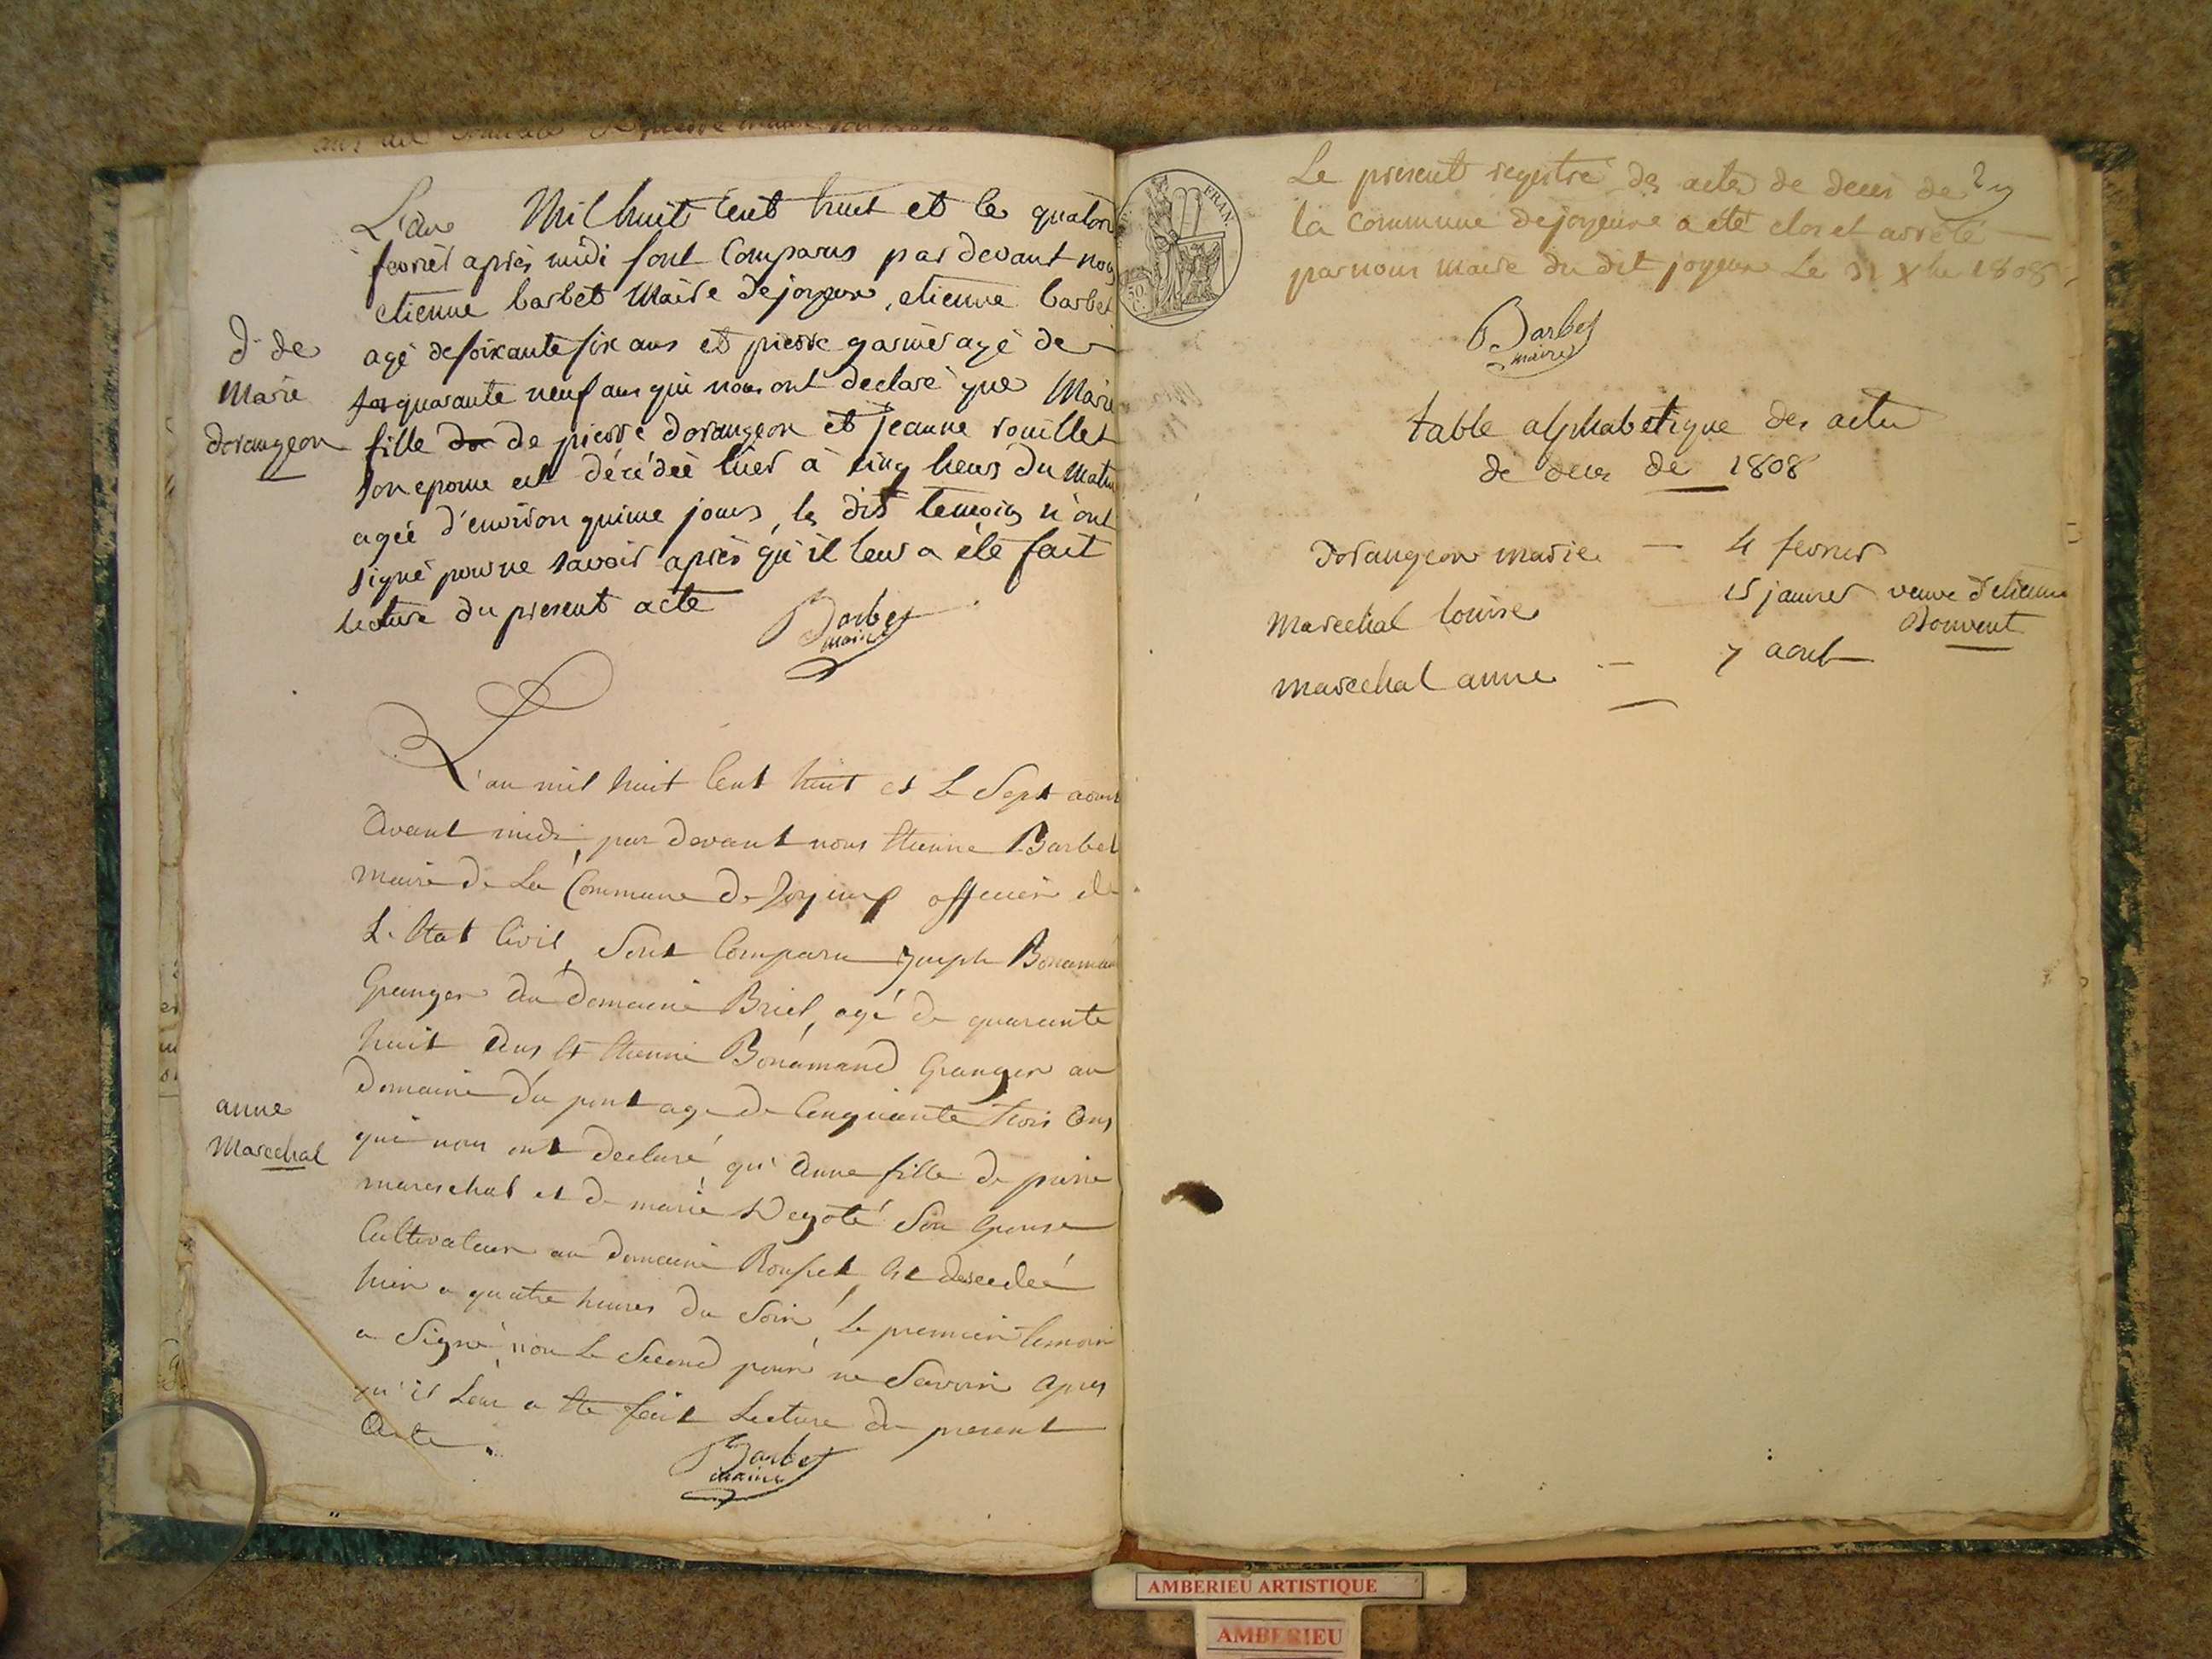 d. de
Marie
dorangeon
L'an Mil huit cent huit et le quator
fevrier après midi sont Comparus par devant nous
etienne barbet Maire de joyeux, etienne barbet
agé de soixante six ans et pierre garnier agé de
quarante neuf ans qui nous ont declaré que Marie
fille de pierre dorangeon et jeanne rouillet
son epouse est décédée hier à cinq heurs du Matin
agée d'environ quinze jours, les dits temoins n'ont
signé pour ne savoir après qu'il leur a été fait
lecture du present acte
Barbet
maire
anne
Marechal
L'an mil huit Cent huit et Le Sept aout
avant midi, par devant nous Etienne Barbet
maire de La Commune de Joyeux officier de
L'Etat Civil, Sont Comparu Joseph Bonamand
Granger du domaine Briel, agé de quarante
huit ans et Etienne Bonamand Granger au
domaine du pont age de Cinquante trois ans
qui nous ont declaré qu'anne fille de pierre
mareschal et de marie Son Epouse
Cultivateur au domaine est decedeé
hier a quatre heures du Soir, Le premier temoin
a Signé non Le Second pour ne Savoir apres
qu'il Leur a ete fait Lecture du present
Acte.
Barbet
maire
FRAN.
50
C.
Le present registre des actes de deces de
la Commune de joyeux a eté clos et arrêté
par nous Maire du dit joyeux Le 31 Xbre 1808
Barbet
maire
table alphabetique des actes
de deces de 1808
dorangeon marie — 4 fevrier
Marechal louise 15 janvier veuve d'etienne
Bouvent
marechal anne — 7 aout
AMBERIEU ARTISTIQUE
AMBERIEU